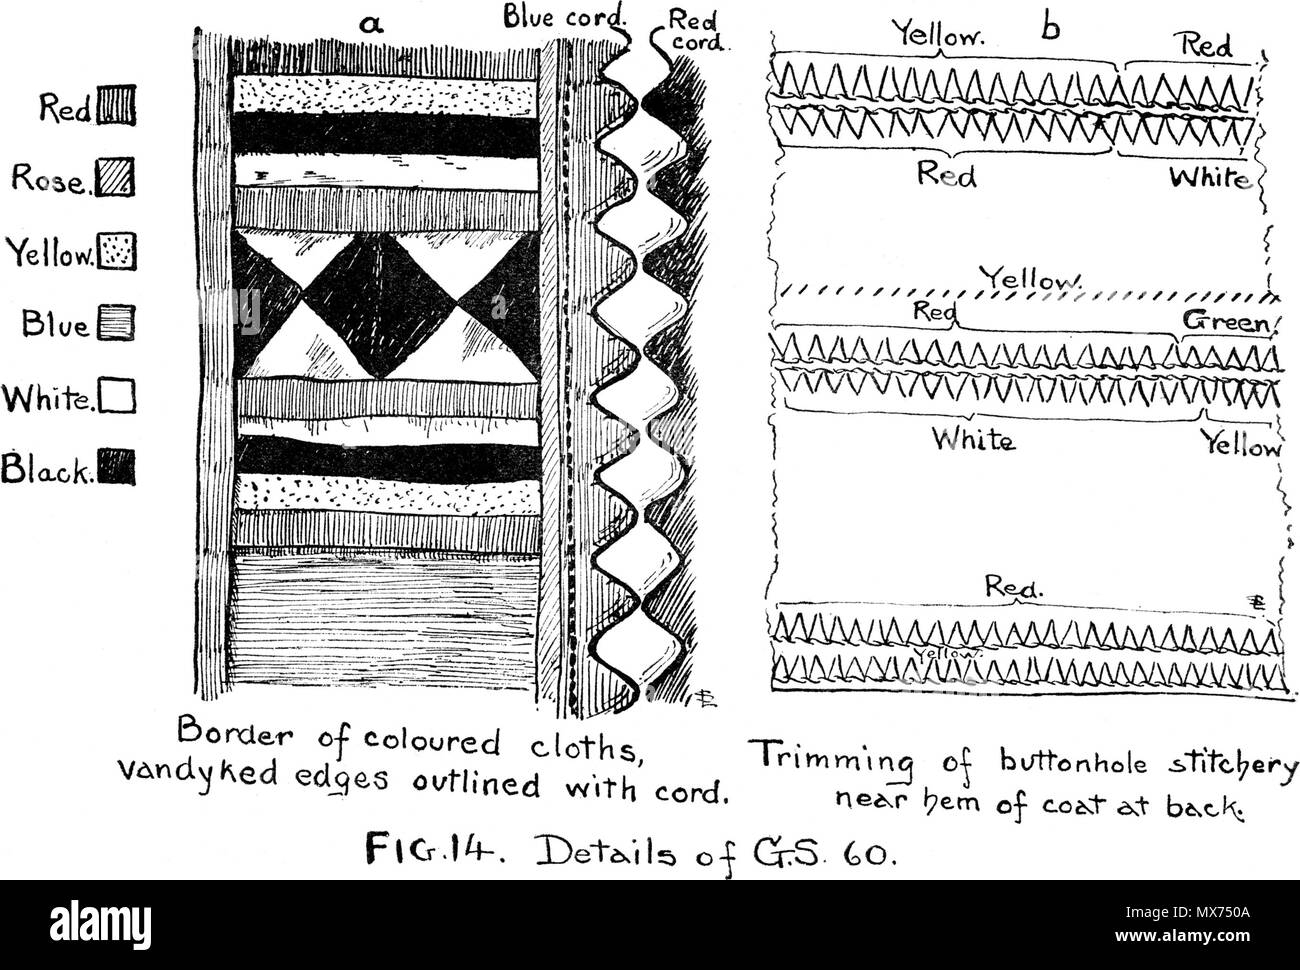 a
Blue cord.
Red
cord.
b
Yellow.
Red
Red
White
Red
Rose.
Yellow.
Blue
White.
Black.
Yellow.
Red
Green.
White
Yellow
Red.
Yellow.
Border of coloured cloths,
vandyked edges outlined with cord.
Trimming of buttonhole stitchery
near hem of coat at back.
FIG.14. Details of G.S. 60.
alamy
a
a
alamy
Image ID: MX750A
www.alamy.com